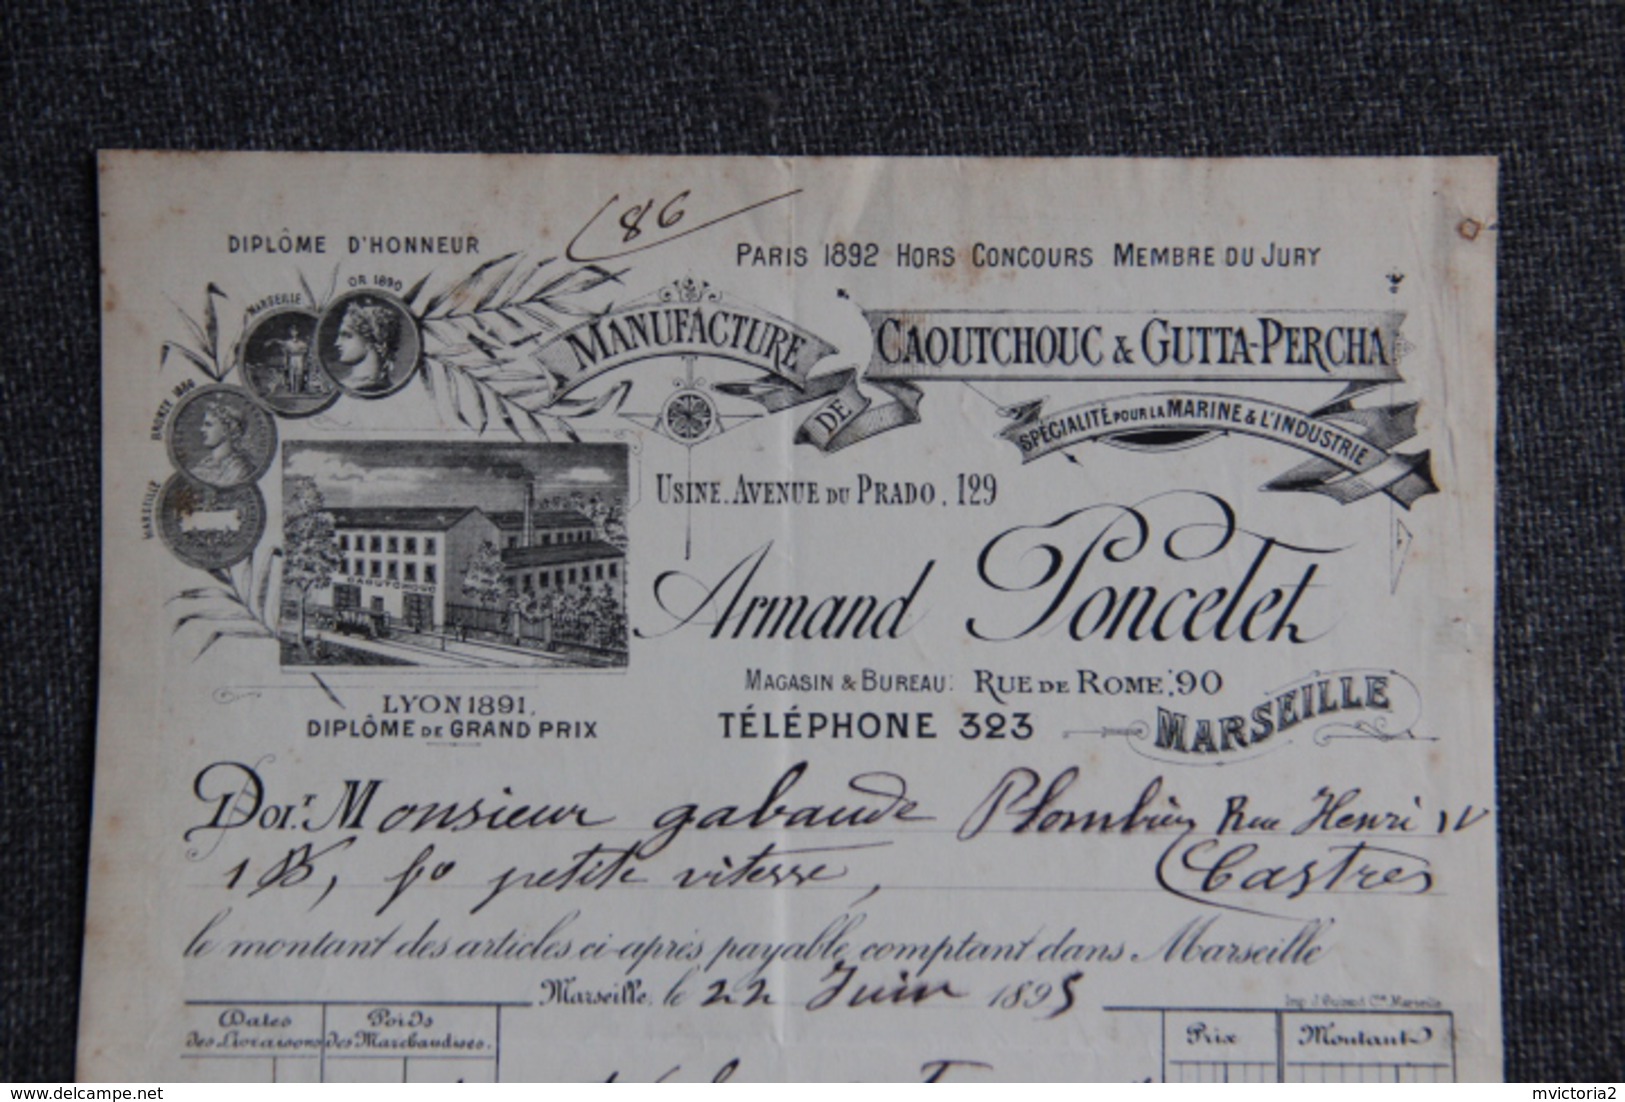 86
DIPLÔME D'HONNEUR
PARIS 1892 HORS CONCOURS MEMBRE DU JURY
MARSEILLE
OR 1890
BRONZE 1886
MARSEILLE
MANUFACTURE
DE
CAOUTCHOUC & GUTTA-PERCHA
SPÉCIALITÉ POUR LA MARINE & L'INDUSTRIE
USINE. AVENUE DU PRADO, 129
CAOUTCHOUC
Armand Poncelet
MAGASIN & BUREAU: RUE DE ROME, 90
LYON 1891.
DIPLÔME DE GRAND PRIX
TÉLÉPHONE 323
MARSEILLE
Doit Monsieur gabaude Plombier Rue Henri IV
petite vitesse, Castres
le montant des articles ci-après payable comptant dans Marseille
Marseille, le 22 Juin 1895
Imp. J. Guiraud Cne Marseille
Dates des Livraisons
Poids des Marchandises.
Prix
Montant
delcampe.net
mvictoria2